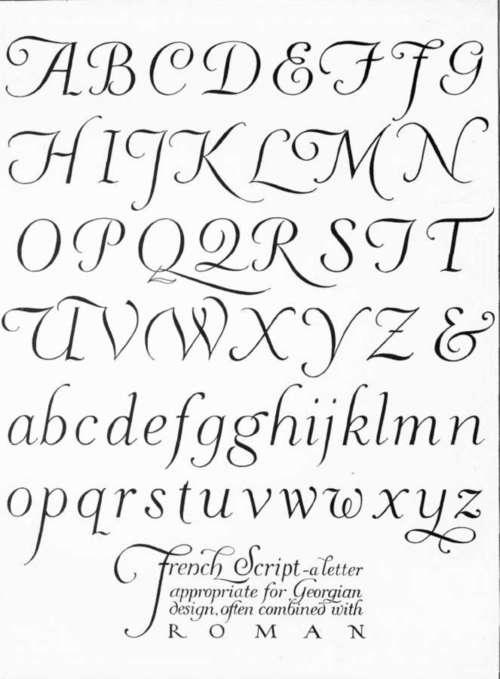 A B C D E F F G
H I J K L M N
O P Q Q R S T T
U V W X Y Z &
a b c d e f g g h i j k l m n
o p q r s t u v w w x y z
French Script - a letter
appropriate for Georgian
design, often combined with
R O M A N